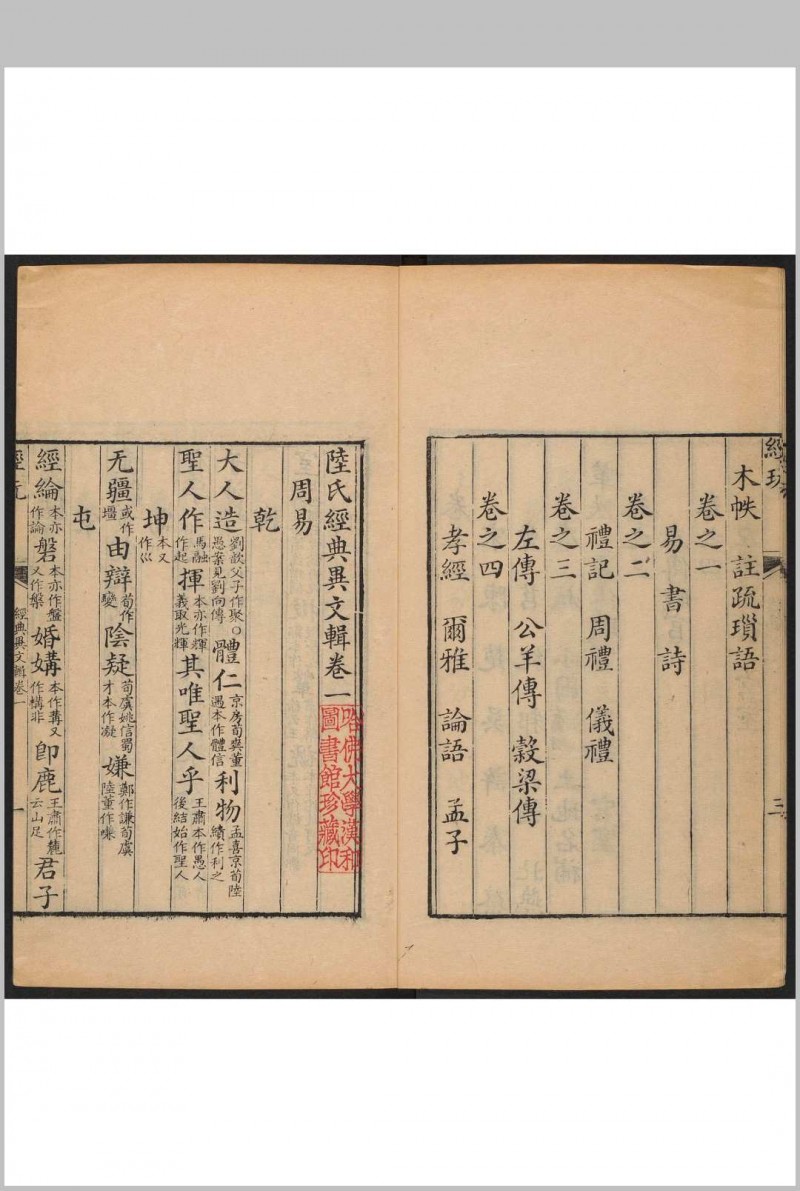 木帙 註疏瑣語
卷之一
易 書 詩
卷之二
禮記 周禮 儀禮
卷之三
左傳 公羊傳 穀梁傳
卷之四
孝經 爾雅 論語 孟子
三
陸氏經典異文輯卷一
哈佛大學漢和圖書館珍藏印
周易
乾
大人造劉歆父子作聚○愚案見劉向傳體仁京房荀爽董遇本作體信利物孟喜京荀陸績作利之
聖人作馬融作起揮本亦作輝義取光輝其唯聖人乎王肅本作愚人後結始作聖人
坤本又作巛
无疆或作壃由辯荀作變陰疑荀虞姚信蜀才本作凝嫌鄭作謙荀虞陸董作嗛
屯
經綸本亦作論磐本亦作盤又作槃婚媾本作冓又作構非即鹿王肅作麓云山足君子
經典異文輯卷一
一